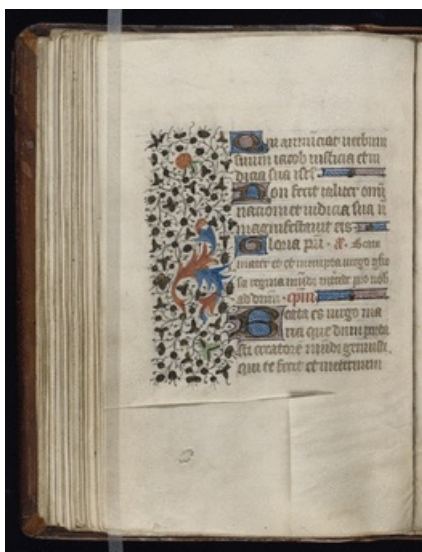 Qui annūciat verbum
suum iacob iusticia et iu
dicia sua isrl
Non fecit taliter omī
nacioni et iudicia sua n̄
magnifestauit eis
Gloria pr̄i · a · Beata
mater et
virgo
regina mūdi
pro nob
ad dn̄m · cp̄m
Beata es virgo ma
ria que dnm porta
sti creatorē mūdi genuisti
qui te fecit et meternum